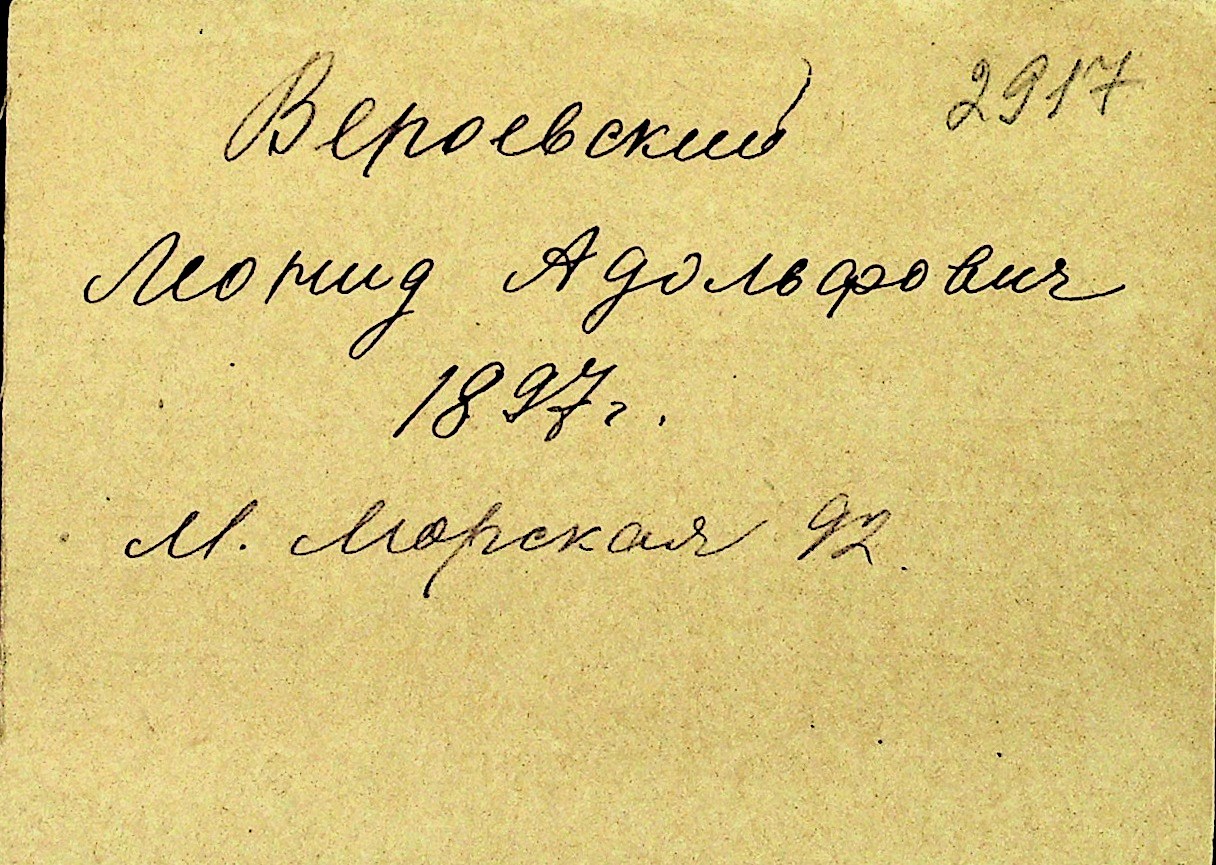 2917
Вероевский
Леонид Адольфович
1897г.
М. Морская 92.